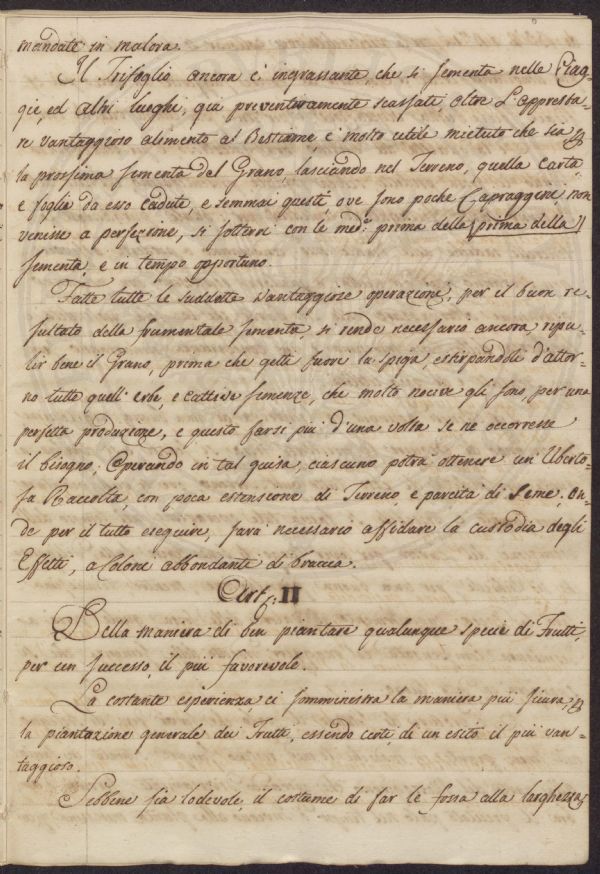 mandate in malora.
Il Trifoglio ancora è ingrassante, che si sementa nelle Piag=
gie, ed altri luoghi, già preventivamente scassati, oltre l'appresta=
re vantaggioso alimento al Bestiame, è molto utile mietuto che sia p
la prossima sementa del Grano, lasciando nel Terreno, quella carta,
e foglie da esso cadute, e semmai questi, ove sono poche Capraggini, non
venisse a perfezione, si sotterri con le med.e prima della (prima della)
sementa, e in tempo opportuno.
Fatte tutte le suddette vantaggiose operazione, per il buon re=
sultato della frumentale sementa, si rende necessario ancora, ripu=
lir bene il Grano, prima che getti fuori la spiga, estirpandoli d'attor=
no tutte quell'erbe, e cattive semenze, che molto nocive gli sono, per una
perfetta produzione, e questo farsi più d'una volta se ne occorresse
il bisogno. Operando in tal guisa, ciascuno potrà ottenere un'Uberto=
sa Raccolta, con poca estensione di Terreno, e parcità di seme, on=
de per il tutto eseguire, sarà necessario affidare la custodia degli
Effetti, a Coloni abbondanti di braccia.
Art. II
Della maniera di ben piantare qualunque specie di Frutti,
per un successo, il più favorevole.
La costante esperienza ci somministra la maniera più sicura, p
la piantazione generale dei Frutti, essendo certi, di un esito il più van=
taggioso.
Sebbene sia lodevole, il costume di far le fossa alla larghezza,